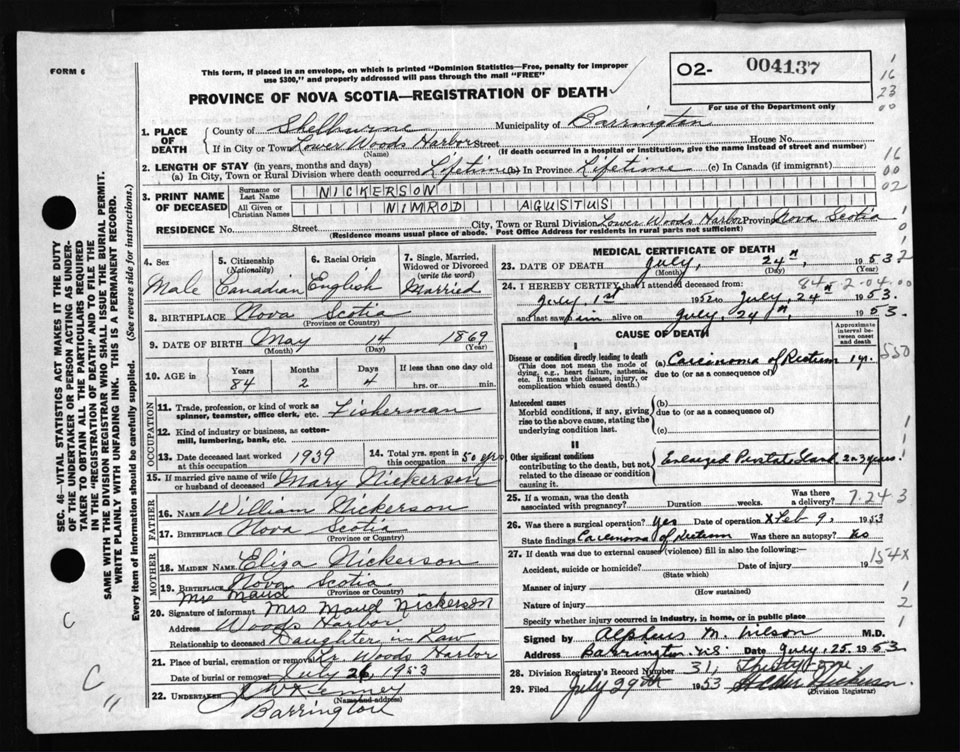 FORM 6
This form, if placed in an envelope, on which is printed "Dominion Statistics—Free, penalty for improper
use $300," and properly addressed will pass through the mail "FREE"
02- 004137
For use of the Department only
PROVINCE OF NOVA SCOTIA—REGISTRATION OF DEATH
1. PLACE OF DEATH
County of Shelburne Municipality of Barrington
If in City or Town Lower Woods Harbor Street House No.
(Name) (If death occurred in a hospital or institution, give the name instead of street and number)
2. LENGTH OF STAY (in years, months and days)
(a) In City, Town or Rural Division where death occurred Lifetime (b) In Province Lifetime (c) In Canada (if immigrant)
3. PRINT NAME OF DECEASED
Surname or Last Name NICKERSON
All Given or Christian Names NIMROD AGUSTUS
RESIDENCE No. Street City, Town or Rural Division Lower Woods Harbor Province Nova Scotia
(Residence means usual place of abode. Post Office Address for residents in rural parts not sufficient)
4. Sex
Male
5. Citizenship (Nationality)
Canadian
6. Racial Origin
English
7. Single, Married, Widowed or Divorced (write the word)
Married
8. BIRTHPLACE Nova Scotia
(Province or Country)
9. DATE OF BIRTH May 14 1869
(Month) (Day) (Year)
10. AGE in Years Months Days If less than one day old
84 2 4 hrs. or min.
OCCUPATION
11. Trade, profession, or kind of work as
spinner, teamster, office clerk, etc. Fisherman
12. Kind of industry or business, as cotton-
mill, lumbering, bank, etc.
13. Date deceased last worked at this occupation 1939
14. Total yrs. spent in this occupation 50 yrs
15. If married give name of wife
or husband of deceased Mary Nickerson
FATHER
16. Name William Nickerson
17. Birthplace Nova Scotia
(Province or Country)
MOTHER
18. MAIDEN NAME Eliza Nickerson
19. BIRTHPLACE Nova Scotia
(Province or Country)
Mrs Maud
20. Signature of informant Mrs Maud Nickerson
Address Woods Harbor
Relationship to deceased Daughter in Law
21. Place of burial, cremation or removal Lr. Woods Harbor
Date of burial or removal July 26, 1953
22. UNDERTAKER Kenney
(Name and address)
Barrington
MEDICAL CERTIFICATE OF DEATH
23. DATE OF DEATH July, 24th, 1953
(Month) (Day) (Year)
24. I HEREBY CERTIFY that I attended deceased from:
July 1st 1952 to July, 24th, 1953.
and last saw him alive on July, 24th, 1953.
CAUSE OF DEATH
Approximate interval between onset and death
I
Disease or condition directly leading to death
(This does not mean the mode of dying, e.g., heart failure, asthenia, etc. It means the disease, injury, or complication which caused death.)
(a) Carcinoma of Rectum 1 yr.
due to (or as a consequence of)
Antecedent causes
Morbid conditions, if any, giving rise to the above cause, stating the underlying condition last.
(b)
due to (or as a consequence of)
(c)
II
Other significant conditions
contributing to the death, but not related to the disease or condition causing it.
Enlarged Prostate Gland 2 or 3 years.
25. If a woman, was the death associated with pregnancy? Duration weeks. Was there a delivery?
26. Was there a surgical operation? Yes Date of operation Feb 9, 1953
State findings Carcinoma of Rectum Was there an autopsy? No
27. If death was due to external causes (violence) fill in also the following:—
Accident, suicide or homicide? Date of injury 19
(State which)
Manner of injury
(How sustained)
Nature of injury
Specify whether injury occurred in industry, in home, or in public place
Signed by Alpheus M. Wilson M.D.
Address Barrington N.S. Date July, 25, 1953
28. Division Registrar's Record Number 31, Thirty One.
29. Filed July 29th 1953 Nickerson
(Division Registrar)
SEC. 46—VITAL STATISTICS ACT MAKES IT THE DUTY
OF THE UNDERTAKER OR PERSON ACTING AS UNDER-
TAKER TO OBTAIN ALL THE PARTICULARS REQUIRED
IN THE "REGISTRATION OF DEATH" AND TO FILE THE
SAME WITH THE DIVISION REGISTRAR WHO SHALL ISSUE THE BURIAL PERMIT.
WRITE PLAINLY WITH UNFADING INK. THIS IS A PERMANENT RECORD.
Every item of information should be carefully supplied. (See reverse side for instructions.)
1
16
23
00
16
00
02
84-2-04-00
550
7.24 3
154X
1
2
C
C